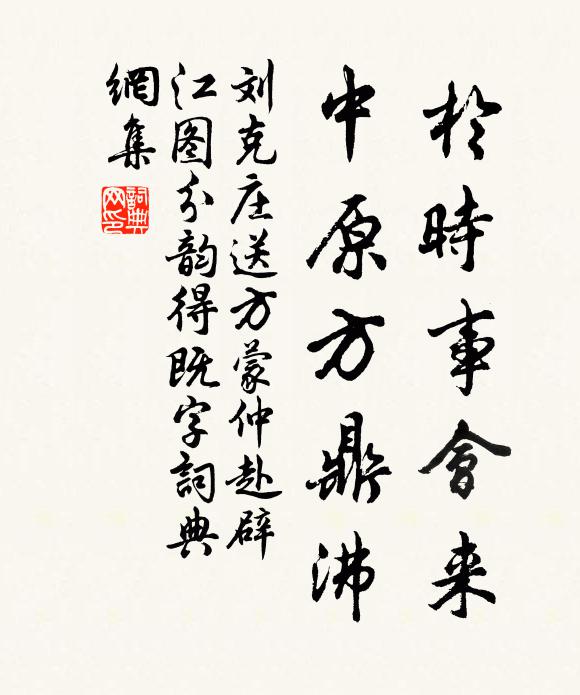 於時事會来
中原方鼎沸
刘克庄送方蒙仲赴辟
江图分韵得既字詞典
網集
詞典網印